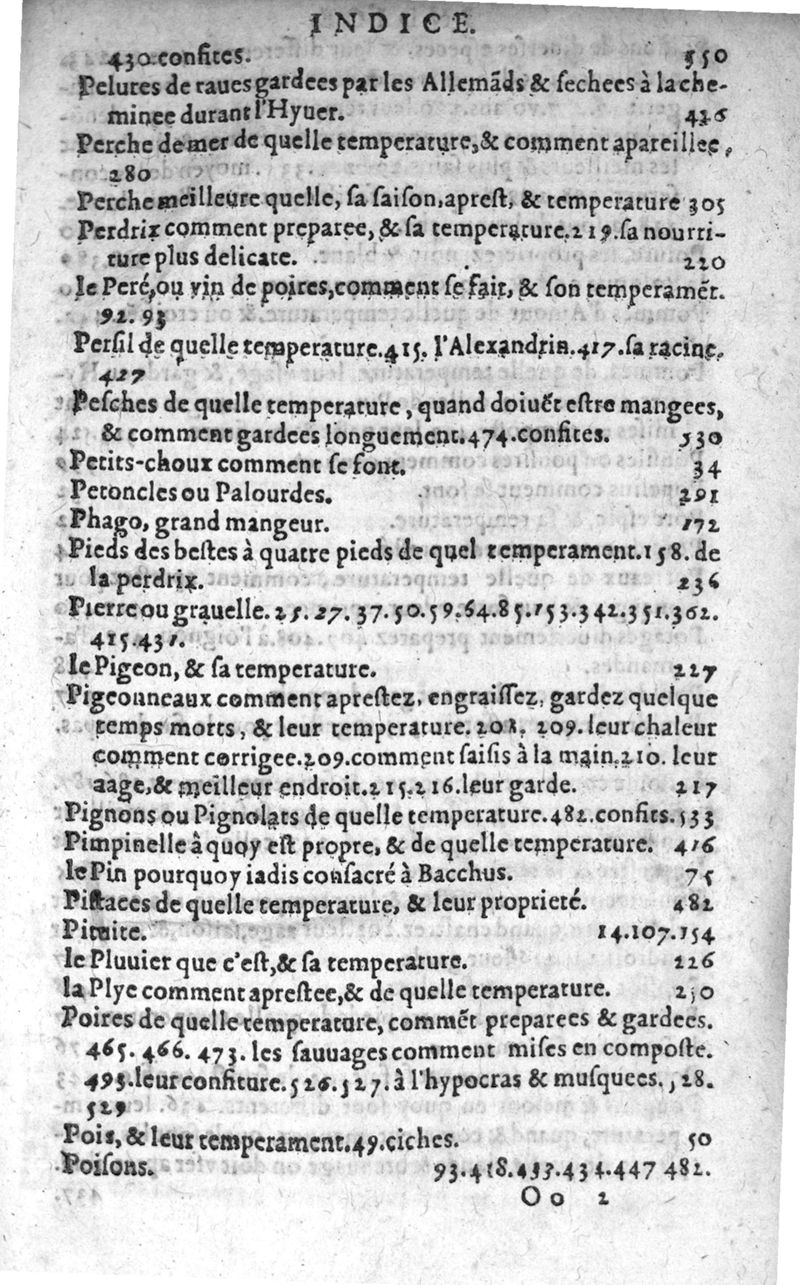 INDICE.
430.confites. 550
Pelures de raues gardees par les Allemãds & ſechees à la che-
minee durant l'Hyuer. 426
Perche de mer de quelle temperature,& comment apareillee,
280
Perche meilleure quelle, ſa ſaiſon,apreſt, & temperature 305
Perdrix comment preparee, & ſa temperature.219.ſa nourri-
ture plus delicate. 220
le Peré,ou vin de poires,comment ſe fait, & ſon temperamẽt.
92. 93
Perſil de quelle temperature.415. l'Alexandrin.417.ſa racine,
427
Peſches de quelle temperature, quand doiuẽt eſtre mangees,
& comment gardees longuement.474.confites. 530
Petits-choux comment ſe font. 34
Petoncles ou Palourdes. 291
Phago, grand mangeur. 172
Pieds des beſtes à quatre pieds de quel temperament.158. de
la perdrix. 236
Pierre ou grauelle.25.27.37.50.59.64.85.153.342.351.362.
415.431.
le Pigeon, & ſa temperature. 227
Pigeonneaux comment apreſtez, engraiſſez, gardez quelque
temps morts, & leur temperature.208. 209.leur chaleur
comment corrigee.209.comment ſaiſis à la main.210. leur
aage,& meilleur endroit.215.216.leur garde. 217
Pignons ou Pignolats de quelle temperature.482.confits.533
Pimpinelle à quoy eſt propre, & de quelle temperature. 416
le Pin pourquoy iadis conſacré à Bacchus. 75
Piſtaces de quelle temperature, & leur proprieté. 482
Pituite. 14.107.154
le Pluuier que c'eſt,& ſa temperature. 226
la Plye comment apreſtee,& de quelle temperature.
Poires de quelle temperature, commẽt preparees & gardees.
465. 466. 473. les ſauuages comment miſes en compoſte.
493.leur confiture.526.527. à l'hypocras & muſquees.528.
529
Pois, & leur temperament.49.ciches. 50
Poiſons. 93.418.433.434.447 482.
Oo 2